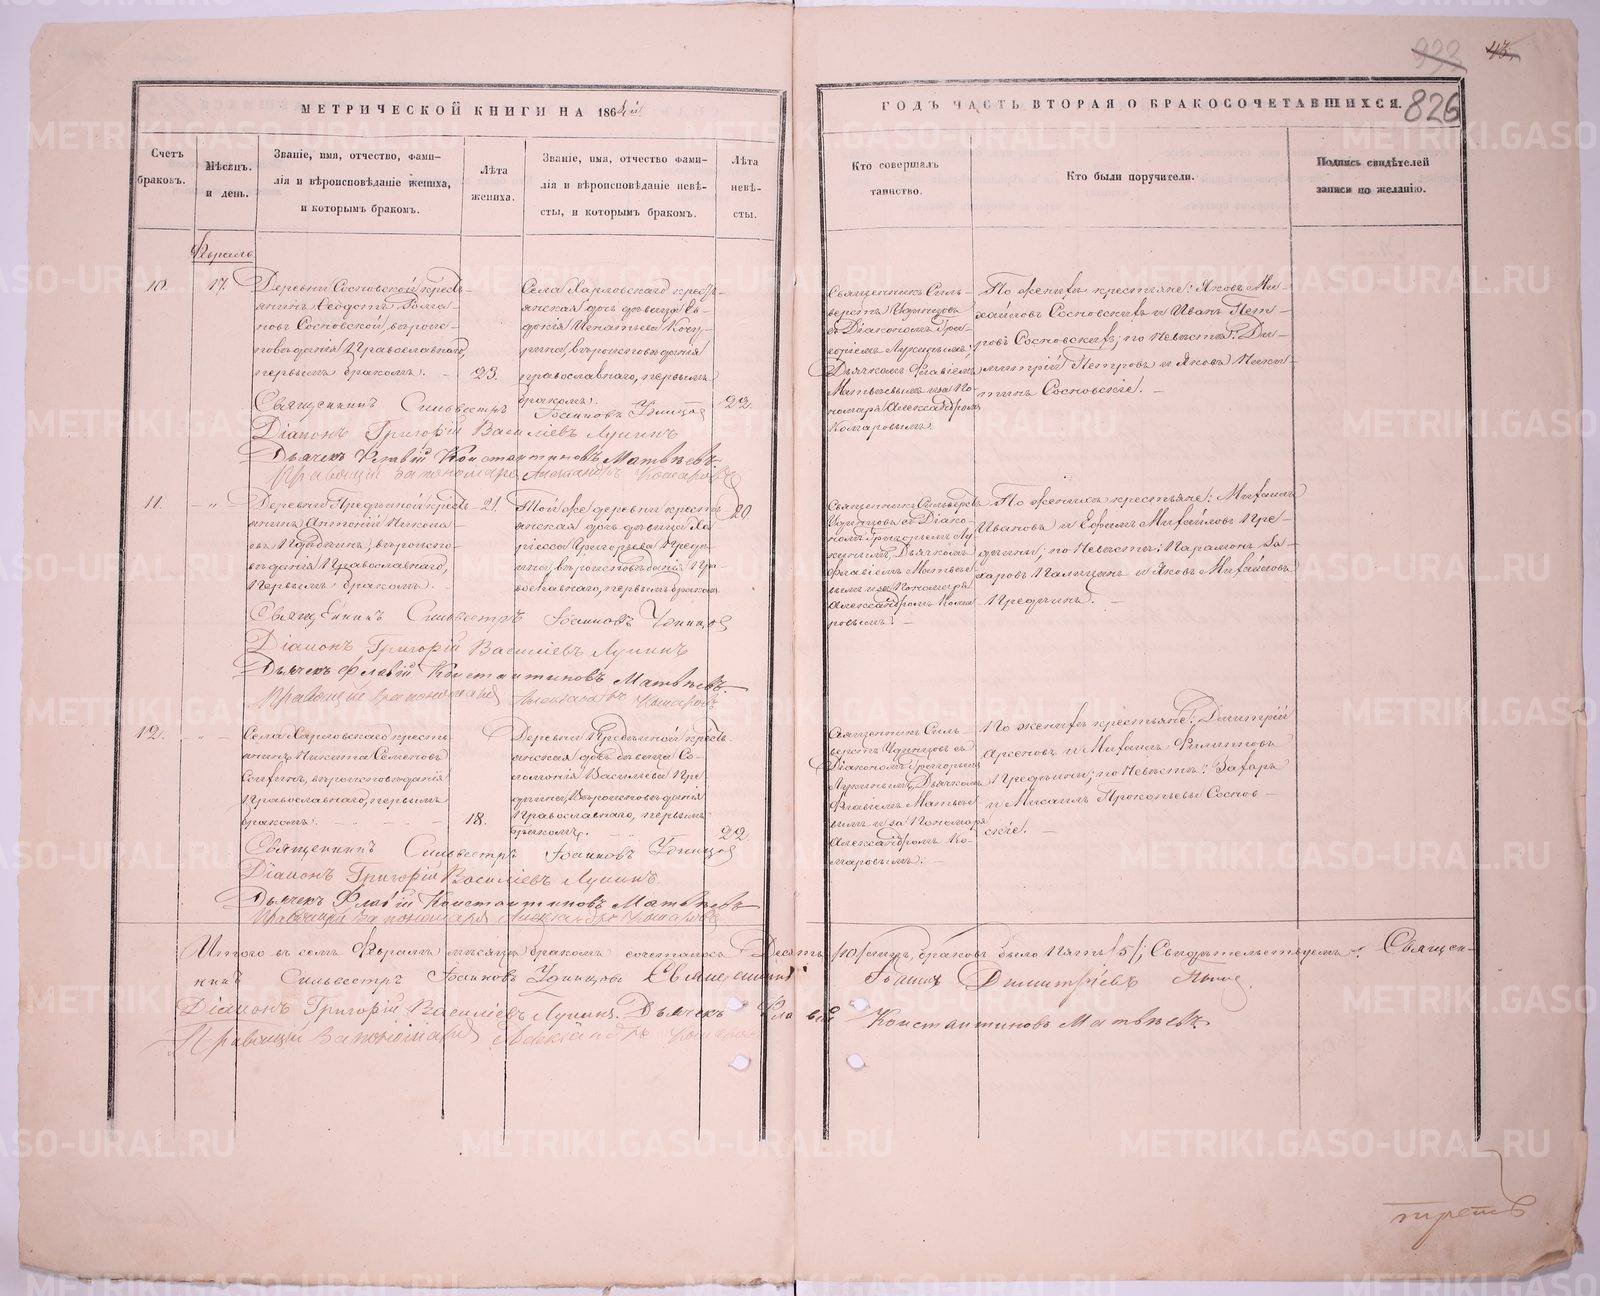 826
МЕТРИЧЕСКОЙ КНИГИ НА 186
ГОДЪ ЧАСТЬ ВТОРАЯ О БРАКОСОЧЕТАВШИХСЯ.
Счетъ
браковъ.
Мѣсяцъ.
и день.
Званіе, имя, отчество, фами-
лія и вѣроисповѣданіе жениха,
и которымъ бракомъ.
Лѣта
жениха.
Званіе, имя, отчество фами-
лія и вѣроисповѣданіе невѣ-
сты, и которымъ бракомъ.
Лѣта
невѣ-
сты.
Кто совершалъ
таинство.
Кто были поручители.
Подпись свидѣтелей
записи по желанію.
10.
17.
Деревни Сосновской кресть-
янинъ Ѳеодотъ Рома-
новъ Сосновской, вѣроис-
повѣданія Православнаго,
первымъ бракомъ.
23.
Села Харловскаго кресть-
янская дочь дѣвица Ев-
докія Игнатьева
вѣроисповѣданія
православнаго, первымъ
бракомъ.
22.
Священникъ Силь-
верстъ Удинцовъ
съ Діакономъ Гри-
горіемъ Лукинымъ,
Дьячкомъ Флавіемъ
Матвѣевымъ и за По-
номаря Александромъ
Комаровымъ.
По женихѣ крестьяне: Яковъ Ми-
хайловъ Сосновскихъ и Иванъ Пет-
ровъ Сосновскихъ; по Невѣстѣ: Ди-
митрій Петровъ и Яковъ Ники-
тинъ Сосновскіе. —
Священникъ Сильвестръ Іоанновъ Удинцов
Діаконъ Григорій Василіевъ Лукинъ
Дьячекъ Флавій Константиновъ Матвѣевъ
Правящій за пономаря Александръ Комаровъ
11.
Деревни Предѣиной кресть-
янинъ Антоній Никола-
евъ вѣроиспо-
вѣданія Православнаго,
Первымъ бракомъ.
21.
Той же деревни кресть-
янская дочь дѣвица Ха-
Григорьева
вѣроисповѣданія Пра-
вославнаго, первымъ бракомъ.
20.
Священникъ Сильверстъ
Удинцовъ съ Діако-
номъ Григоріемъ Лу-
кинымъ, Дьячкомъ
Флавіемъ Матвѣе-
вымъ и за Пономаря
Александромъ Кома-
ровымъ. —
По женихѣ крестьяне: Михаилъ
Ивановъ и Ефимъ Михайловъ Пре-
дѣины; по Невѣстѣ: Парамонъ За-
харовъ и Яковъ Михайловъ
Предѣинъ. —
Священникъ Сильвестръ Іоанновъ Удинцов
Діаконъ Григорій Василіевъ Лукинъ
Дьячекъ Флавій Константиновъ Матвѣевъ.
Правящій за пономаря Александръ Комаровъ
12.
Села Харловскаго кресть-
янинъ Никита Семеновъ
вѣроисповѣданія
Православнаго, первымъ
бракомъ.
18.
Деревни Предѣиной кресть-
янская дочь дѣвица Со-
ломонія Васильева Пре-
дѣина, Вѣроисповѣданія
Православнаго, первымъ
бракомъ.
22
Священникъ Силь-
верстъ Удинцовъ съ
Діакономъ Григоріемъ
Лукинымъ, Дьячкомъ
Флавіемъ Матвѣе-
вымъ и за Пономаря
Александромъ Ко-
маровымъ. —
По женихѣ крестьяне: Димитрій
Арсеновъ и Михаилъ Филиповъ
Предѣины; по Невѣстѣ: Захаръ
и Мисаилъ Прокопьевы Соснов-
скіе. —
Священникъ Сильвестръ Іоанновъ Удинцов
Діаконъ Григорій Василіевъ Лукинъ.
Дьячекъ Флавій Константиновъ Матвѣевъ
Правящій за пономаря Александръ Комаровъ
Итого въ семъ Февралѣ мѣсяцѣ бракомъ сочеталось Десять /10/ лицъ, браковъ было Пять /5/; Свидѣтельствуемъ: Священ-
никъ Сильвестръ Іоанновъ Удинцовъ Іоаннъ Димитріевъ
Діаконъ Григорій Василіевъ Лукинъ. Дьячекъ Флавій Константиновъ Матвѣевъ
Правящій за пономаря Александръ Комаровъ
METRIKI.GASO-URAL.RU